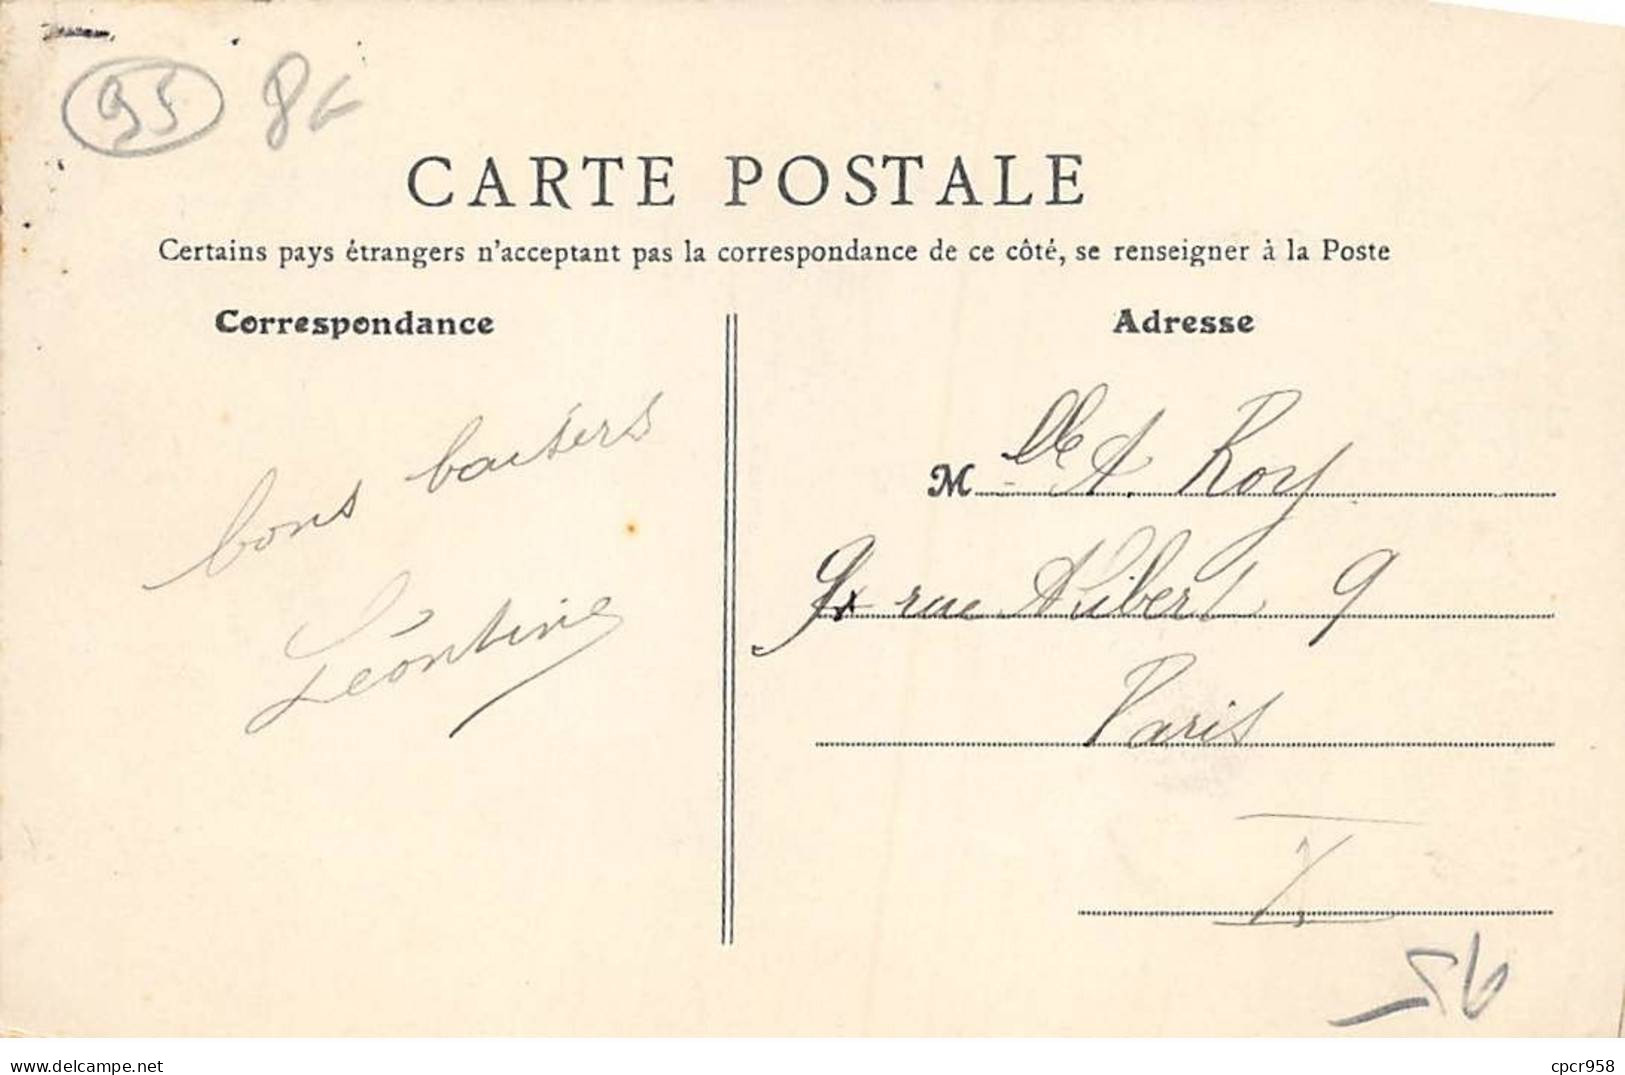 95 8€
CARTE POSTALE
Certains pays étrangers n'acceptant pas la correspondance de ce côté, se renseigner à la Poste
Correspondance
bons baisers
Léontine
Adresse
Mlle A. Roy
9 rue Alibert 9
Paris
X
www.delcampe.net
cpcr958